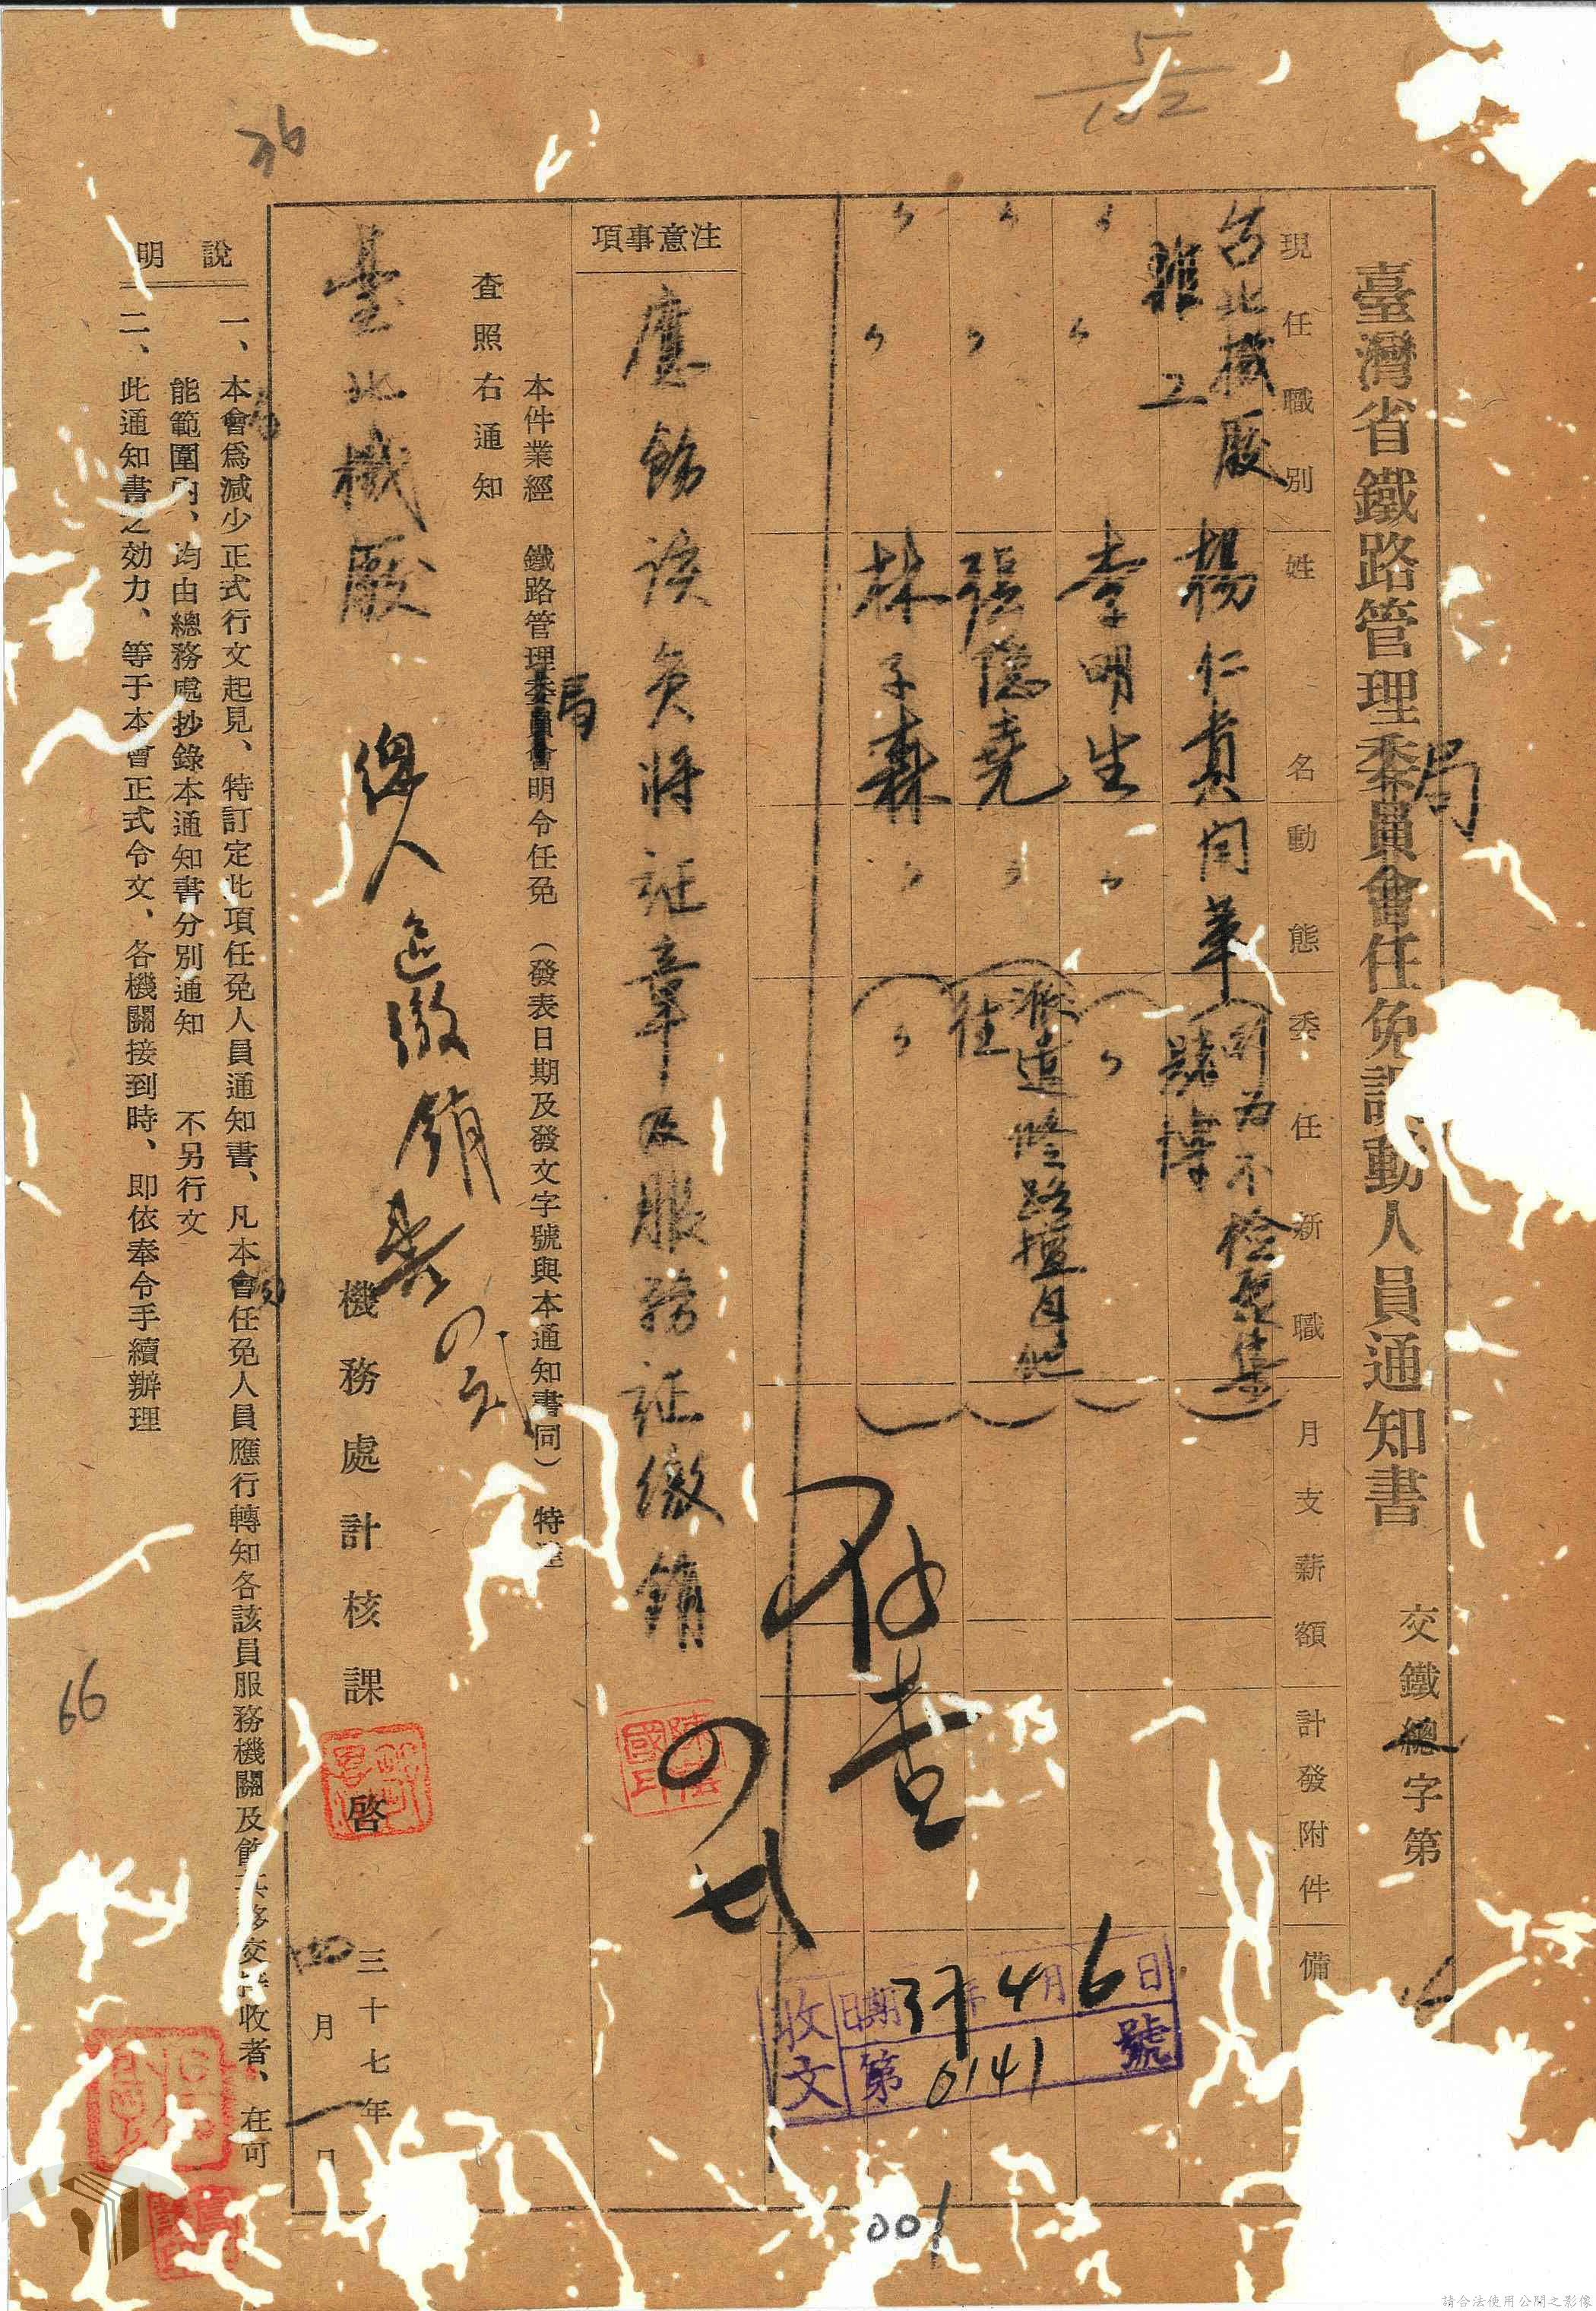 5/102
76
臺灣省鐵路管理委員會任免調動人員通知書
局
交鐵總字第
現任職別
姓名
動態
委任新職
月支薪額
計發附件
備
台北機廠
雜工
楊仁貴
開革
行為不檢聚集賭博
〃〃
李明生
〃
〃
〃〃
張隐堯
〃
派造修路擅自他往
〃〃
林子森
〃
〃
存查
注意事項
應飭該員將証章及服務証繳銷
本件業經 鐵路管理委員會明令任免 (發表日期及發文字號與本通知書同) 特達
局
查照右通知
臺北機廠
機務處計核課 啓
三十七年
四月一日
收文
日期37年4月6日
第0141號
說明
一、本會爲減少正式行文起見、特訂定此項任免人員通知書、凡本會任免人員應行轉知各該員服務機關及飭其移交接收者、在可
能範圍內、均由總務處抄錄本通知書分別通知 不另行文
二、此通知書之効力、等于本會正式令文、各機關接到時、即依奉令手續辦理
66
001
請合法使用公開之影像